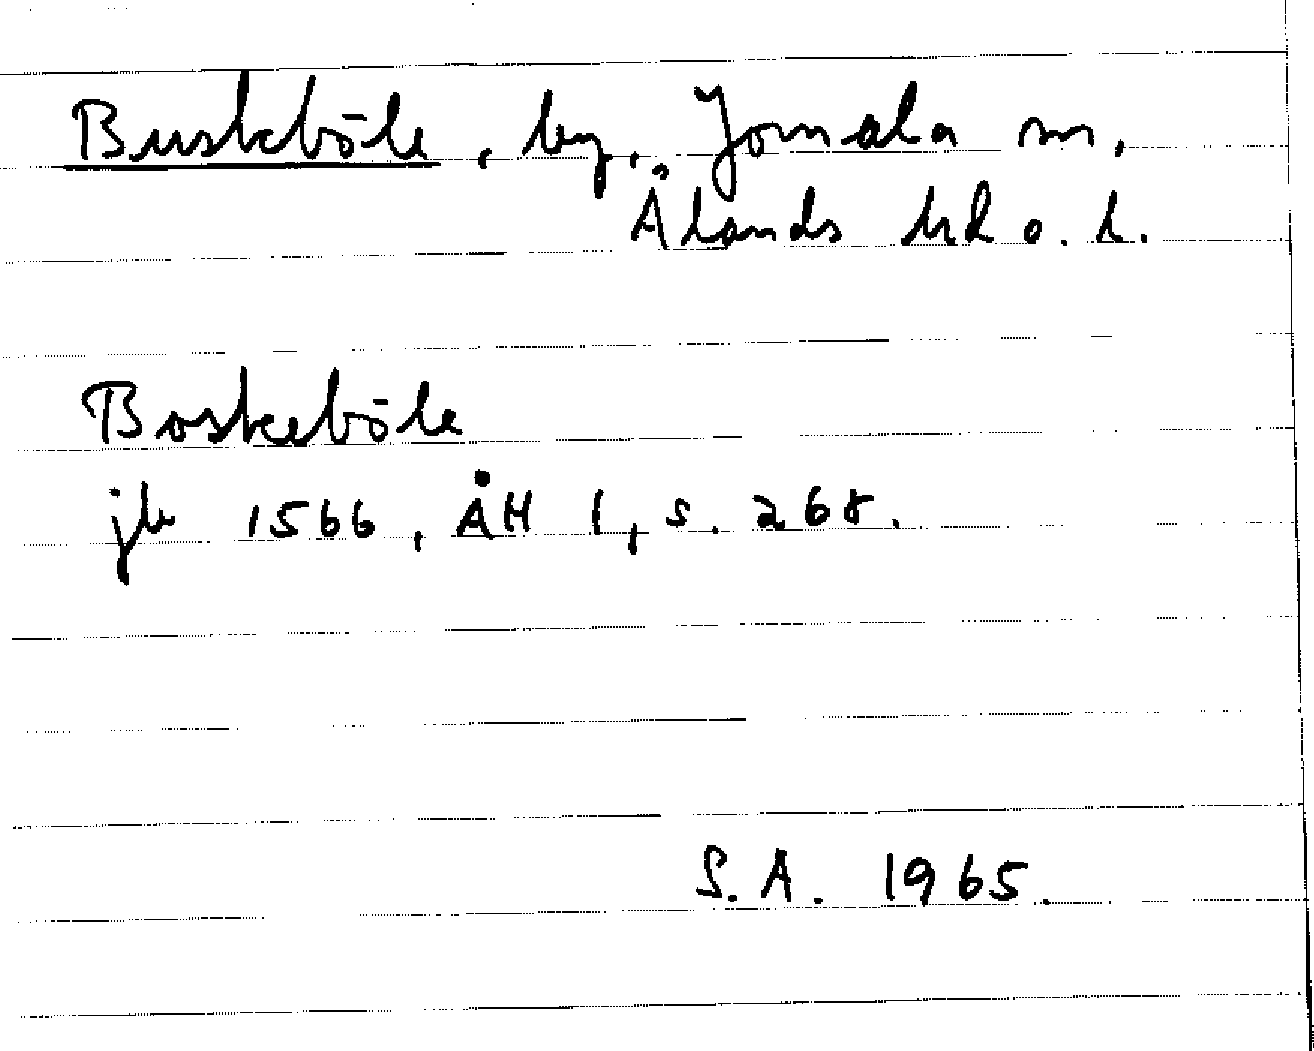 Buskböle, by, Jomala sn,
Ålands hd o. l.
Boskeböle
jb 1566, ÅH 1, s. 268.
S.A. 1965.